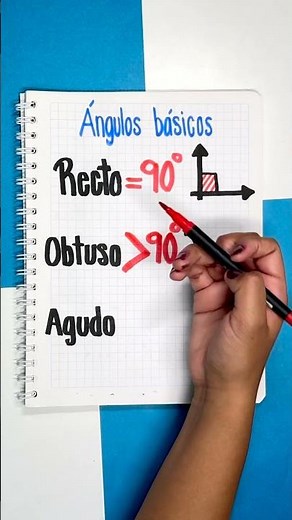 Ángulos básicos
Recto = 90°
Obtuso > 90°
Agudo